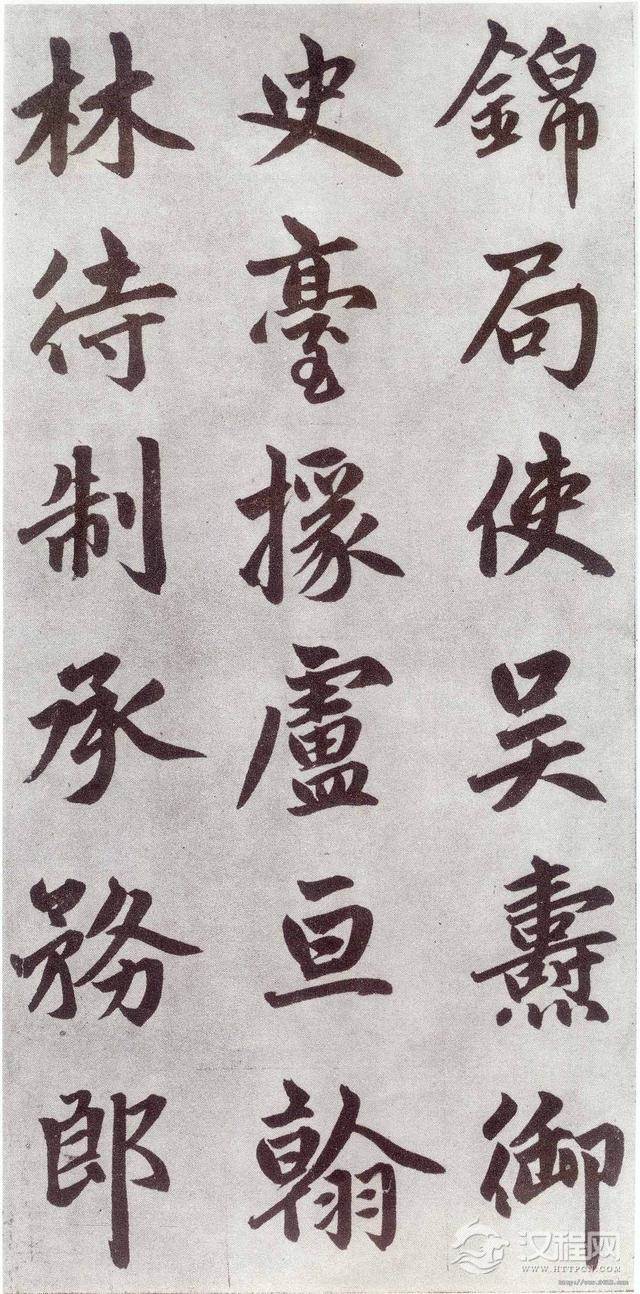 錦局使吴燾御
史臺掾盧亘翰
林待制承務郎
汉程网
WWW.HTTPCN.COM